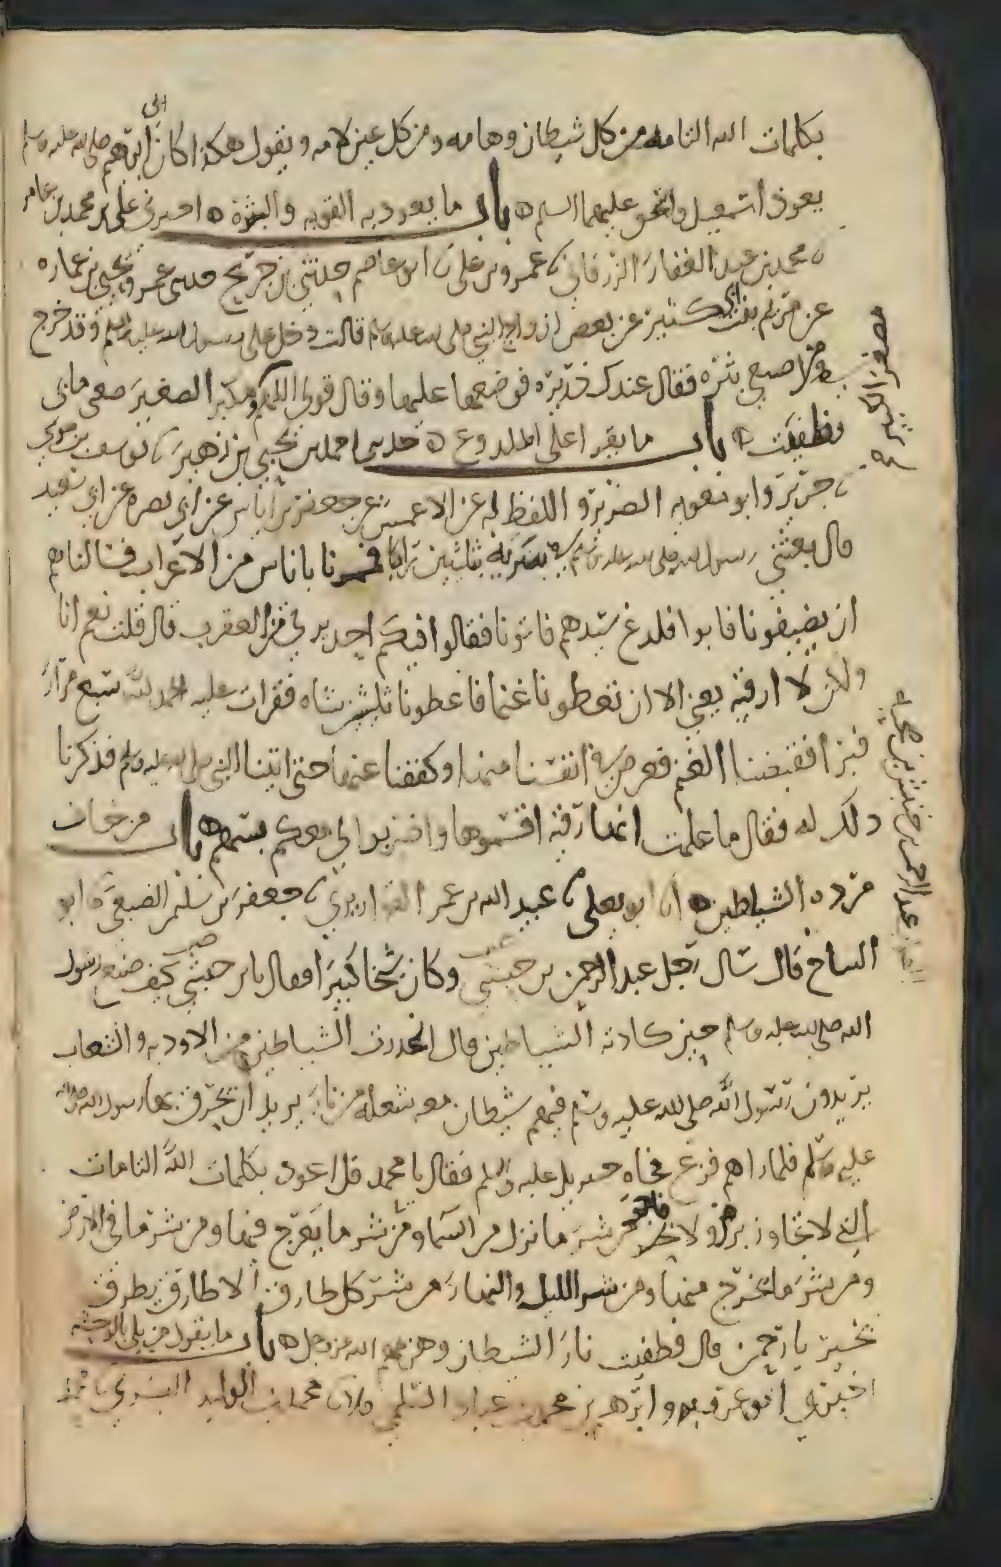 بكلمات الله التامه من كل شيطان وهامه ومن كل عين لامه ويقول هكذا كان أبي ابرهيم صلى الله عليه وسلم
يعوذ اسمعيل واسحق عليهما السلم باب ما يعوذ به القوبه والبثرة اخبرني علي بن محمد بن عامر
محمد بن عبد الغفار الزرقاني عمرو بن علي ابو عاصم حدثني بن جريج حدثني عمرو بن يحيى بن عماره
عن مريم بنت ابي كثير عن بعض ازواج النبي صلى الله عليه وسلم قالت دخل علي رسول الله صلى الله عليه وسلم وقد خرج
من اصبعي بثره فقال عندك ذريره فوضعها عليها وقال قولي اللهم مكبر الصغير صغر ما بي
فطفيت باب ما يقرا على الملدوغ حدثنا احمد بن يحيى بن زهير يوسف بن موسى
جرير وابو معويه الضرير واللفظ له عن الاعمش عن جعفر بن اياس عن ابي نضره عن ابي سعيد
قال بعثني رسول الله صلى الله عليه وسلم في سريه ثلثين راكبا فمرنا باناس من الاعراب فسالناهم
ان يضيفونا فابوا فلدغ سيدهم فاتونا فقالوا افيكم احد يرقي من العقرب قال قلت نعم انا
ولكن لا ارقيه يعني الا ان تعطونا غنما فاعطونا ثلثين شاه فقرات عليه الحمد لله سبع مرار
فبرا فقبضنا الغنم فعرض في انفسنا منها وكففنا عنها حتى اتينا النبي صلى الله عليه وسلم فذكرنا
ذلك له فقال ما علمت انها رقيه اقتسموها واضربوا لي معكم بسهم باب من يخاف
مرده الشياطين ابو يعلى عبيد الله بن عمر القواريري جعفر بن سليمن الضبعي ابو
التياح قال سال رجل عبد الرحمن بن خنبش وكان شيخا كبيرا فقال يا بن خنبش كيف صنع رسول
الله صلى الله عليه وسلم حين كادته الشياطين قال انحدرت الشياطين من الاوديه والشعاب
يريدون رسول الله صلى الله عليه وسلم فيهم شيطان معه شعله من نار يريد ان يحرق بها رسول الله صلى الله
عليه وسلم فلما راهم فزع فجاه جبريل عليه السلم فقال يا محمد قل اعوذ بكلمات الله التامات
التي لا يجاوزهن بر ولا فاجر من شر ما نزل من السما ومن شر ما يعرج فيها ومن شر ما في الارض
ومن شر ما يخرج منها ومن شر الليل والنهار من شر كل طارق الا طارق يطرق
بخير يا رحمن قال فطفيت نار الشيطان وهزمهم الله عز وجل باب ما يقول من بلي بالوحشه
اخبرني ابو عروبه وابرهيم بن محمد بن عباد السلمي قالا محمد بن الوليد البسري محمد
مصغر الكبير
عبد الرحمن بن خنبش